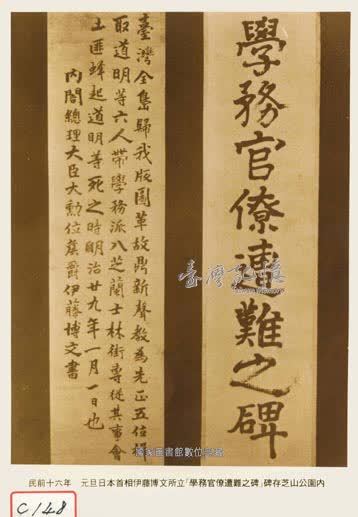 學務官僚遭難之碑
臺灣全島歸我版圖革故鼎新聲教為先正五位楫
取道明等六人帶學務派八芝蘭士林街專從其事會
土匪蜂起道明等死之時明治廿九年一月一日也
內閣總理大臣大勳位侯爵伊藤博文書
臺灣記憶
國家圖書館數位典藏
民前十六年　元旦日本首相伊藤博文所立「學務官僚遭難之碑」碑存芝山公園內
C148